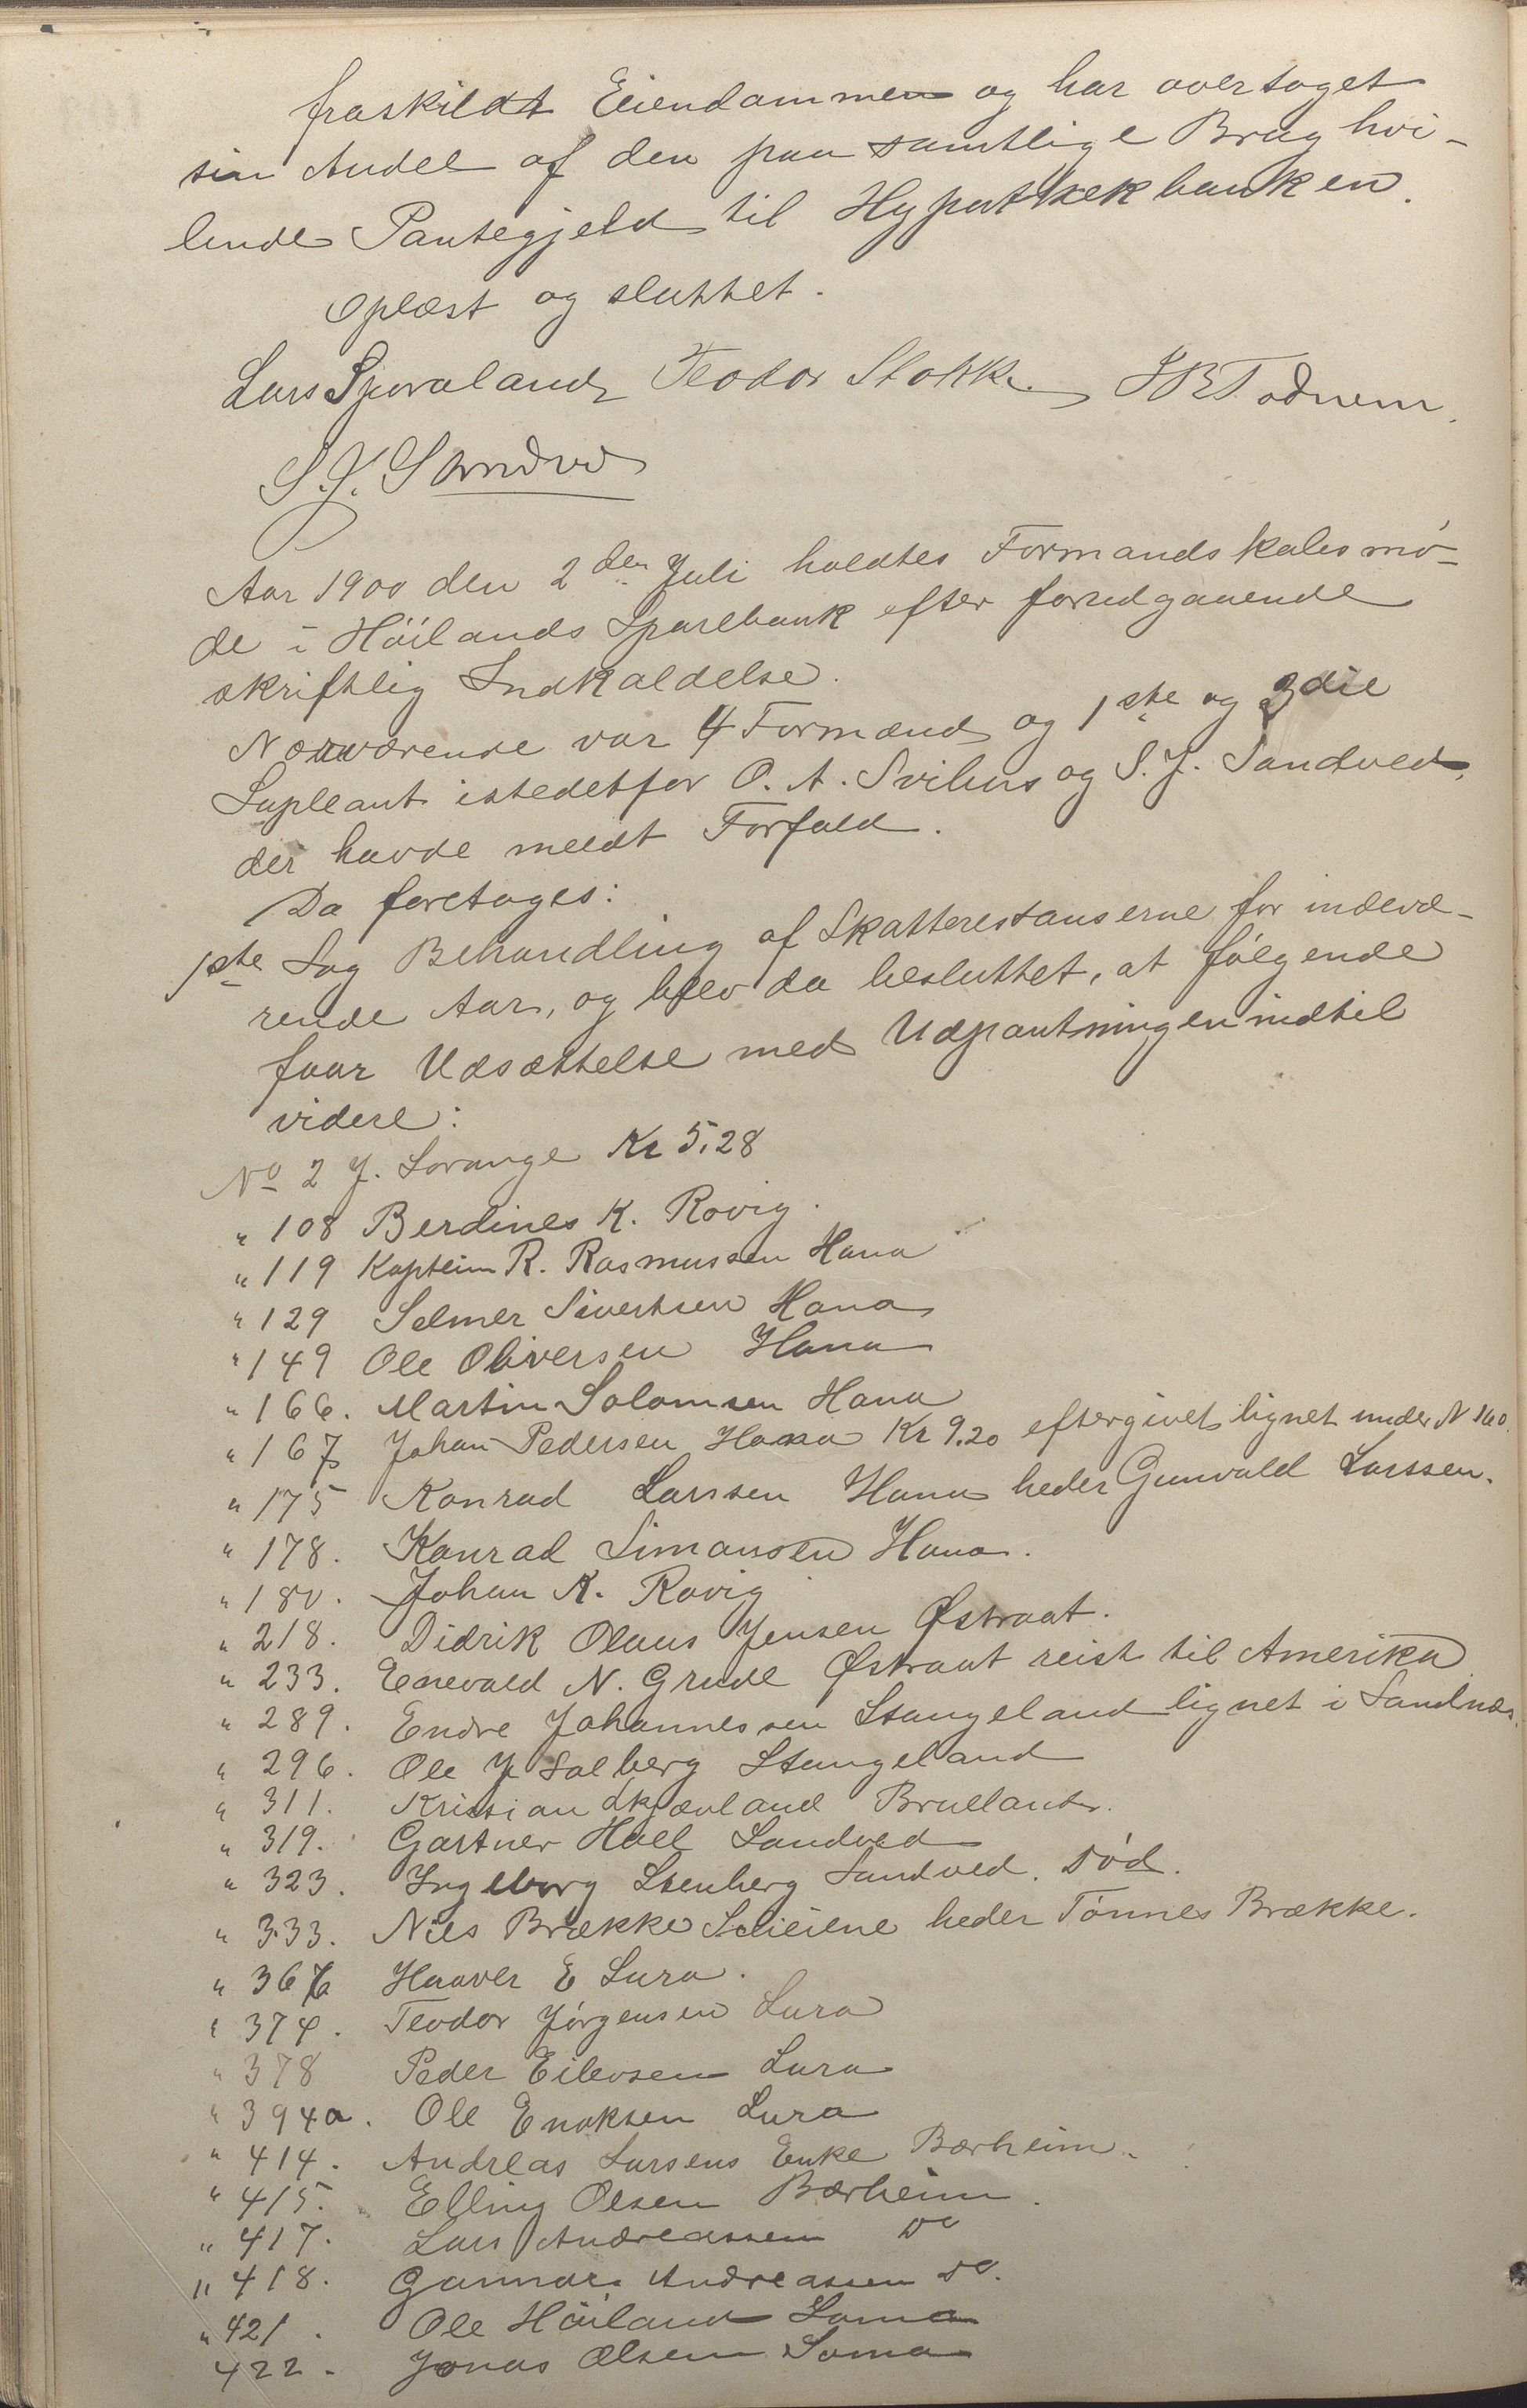 fraskildt Eiendommen og har overtaget
sin Andel af den paa samtlige Brug hvi-
lende Pantegjeld til Hypothekbanken.
Oplæst og sluttet.
Lars Spovaland Teodor Stokke T B Todnem
S. J. Sandved
Aar 1900 den 2den Juli holdtes Formandskabsmö-
de i Höilands Sparebank efter foredgaaende
skriftlig Indkaldelse.
Nærværende var 4 Formænd og 1ste og 3die
Supleant istedetfor O. A. Svihus og S. J. Sandved,
der havde meldt Forfald.
Da foretoges:
1ste Sag Behandling af Skatterestanserne for indevæ-
rende Aar, og blev da besluttet, at følgende
faar Udsættelse med Udpantningen indtil
videre:
No 2 J. Lorange Kr 5,28
" 108 Berdines K. Rovig.
" 119 Kaptein R. Rasmussen Hana
" 129 Selmer Sivertsen Hana
" 149 Ole Oliversen Hana
" 166. Martin Salomsen Hana
" 167 Johan Pedersen Hana Kr 9.20 eftergivet lignet under N 160.
" 175 Konrad Larssen Hana heder Gunvald Larssen.
" 178. Konrad Simonsen Hana.
" 180. Johan K. Rovig
" 218. Didrik Olaus Jensen Østraat.
" 233. Enevald N. Grude Østraat reist til Amerika
" 289. Endre Johannessen Stangeland lignet i Sandnæs.
" 296. Ole J Solberg Stangeland
" 311. Kristian Skjævland Brueland.
" 319. Gartner Hall Sandved
" 323. Ingeborg Stenberg Sandved. Död.
" 333. Nils Brække Skeiene heder Tönnes Brække.
" 367 Haaver E Lura.
" 374. Teodor Jörgensen Lura
" 378 Peder Eilevsen Lura
" 394a. Ole Enoksen Lura
" 414. Andreas Larsens Enke Bærheim.
" 415. Elling Olsen Bærheim.
" 417. Lars Andreassen Do
" 418. Gunnar Andreassen Do.
" 421. Ole Höiland Soma
422. Jonas Olsen Soma